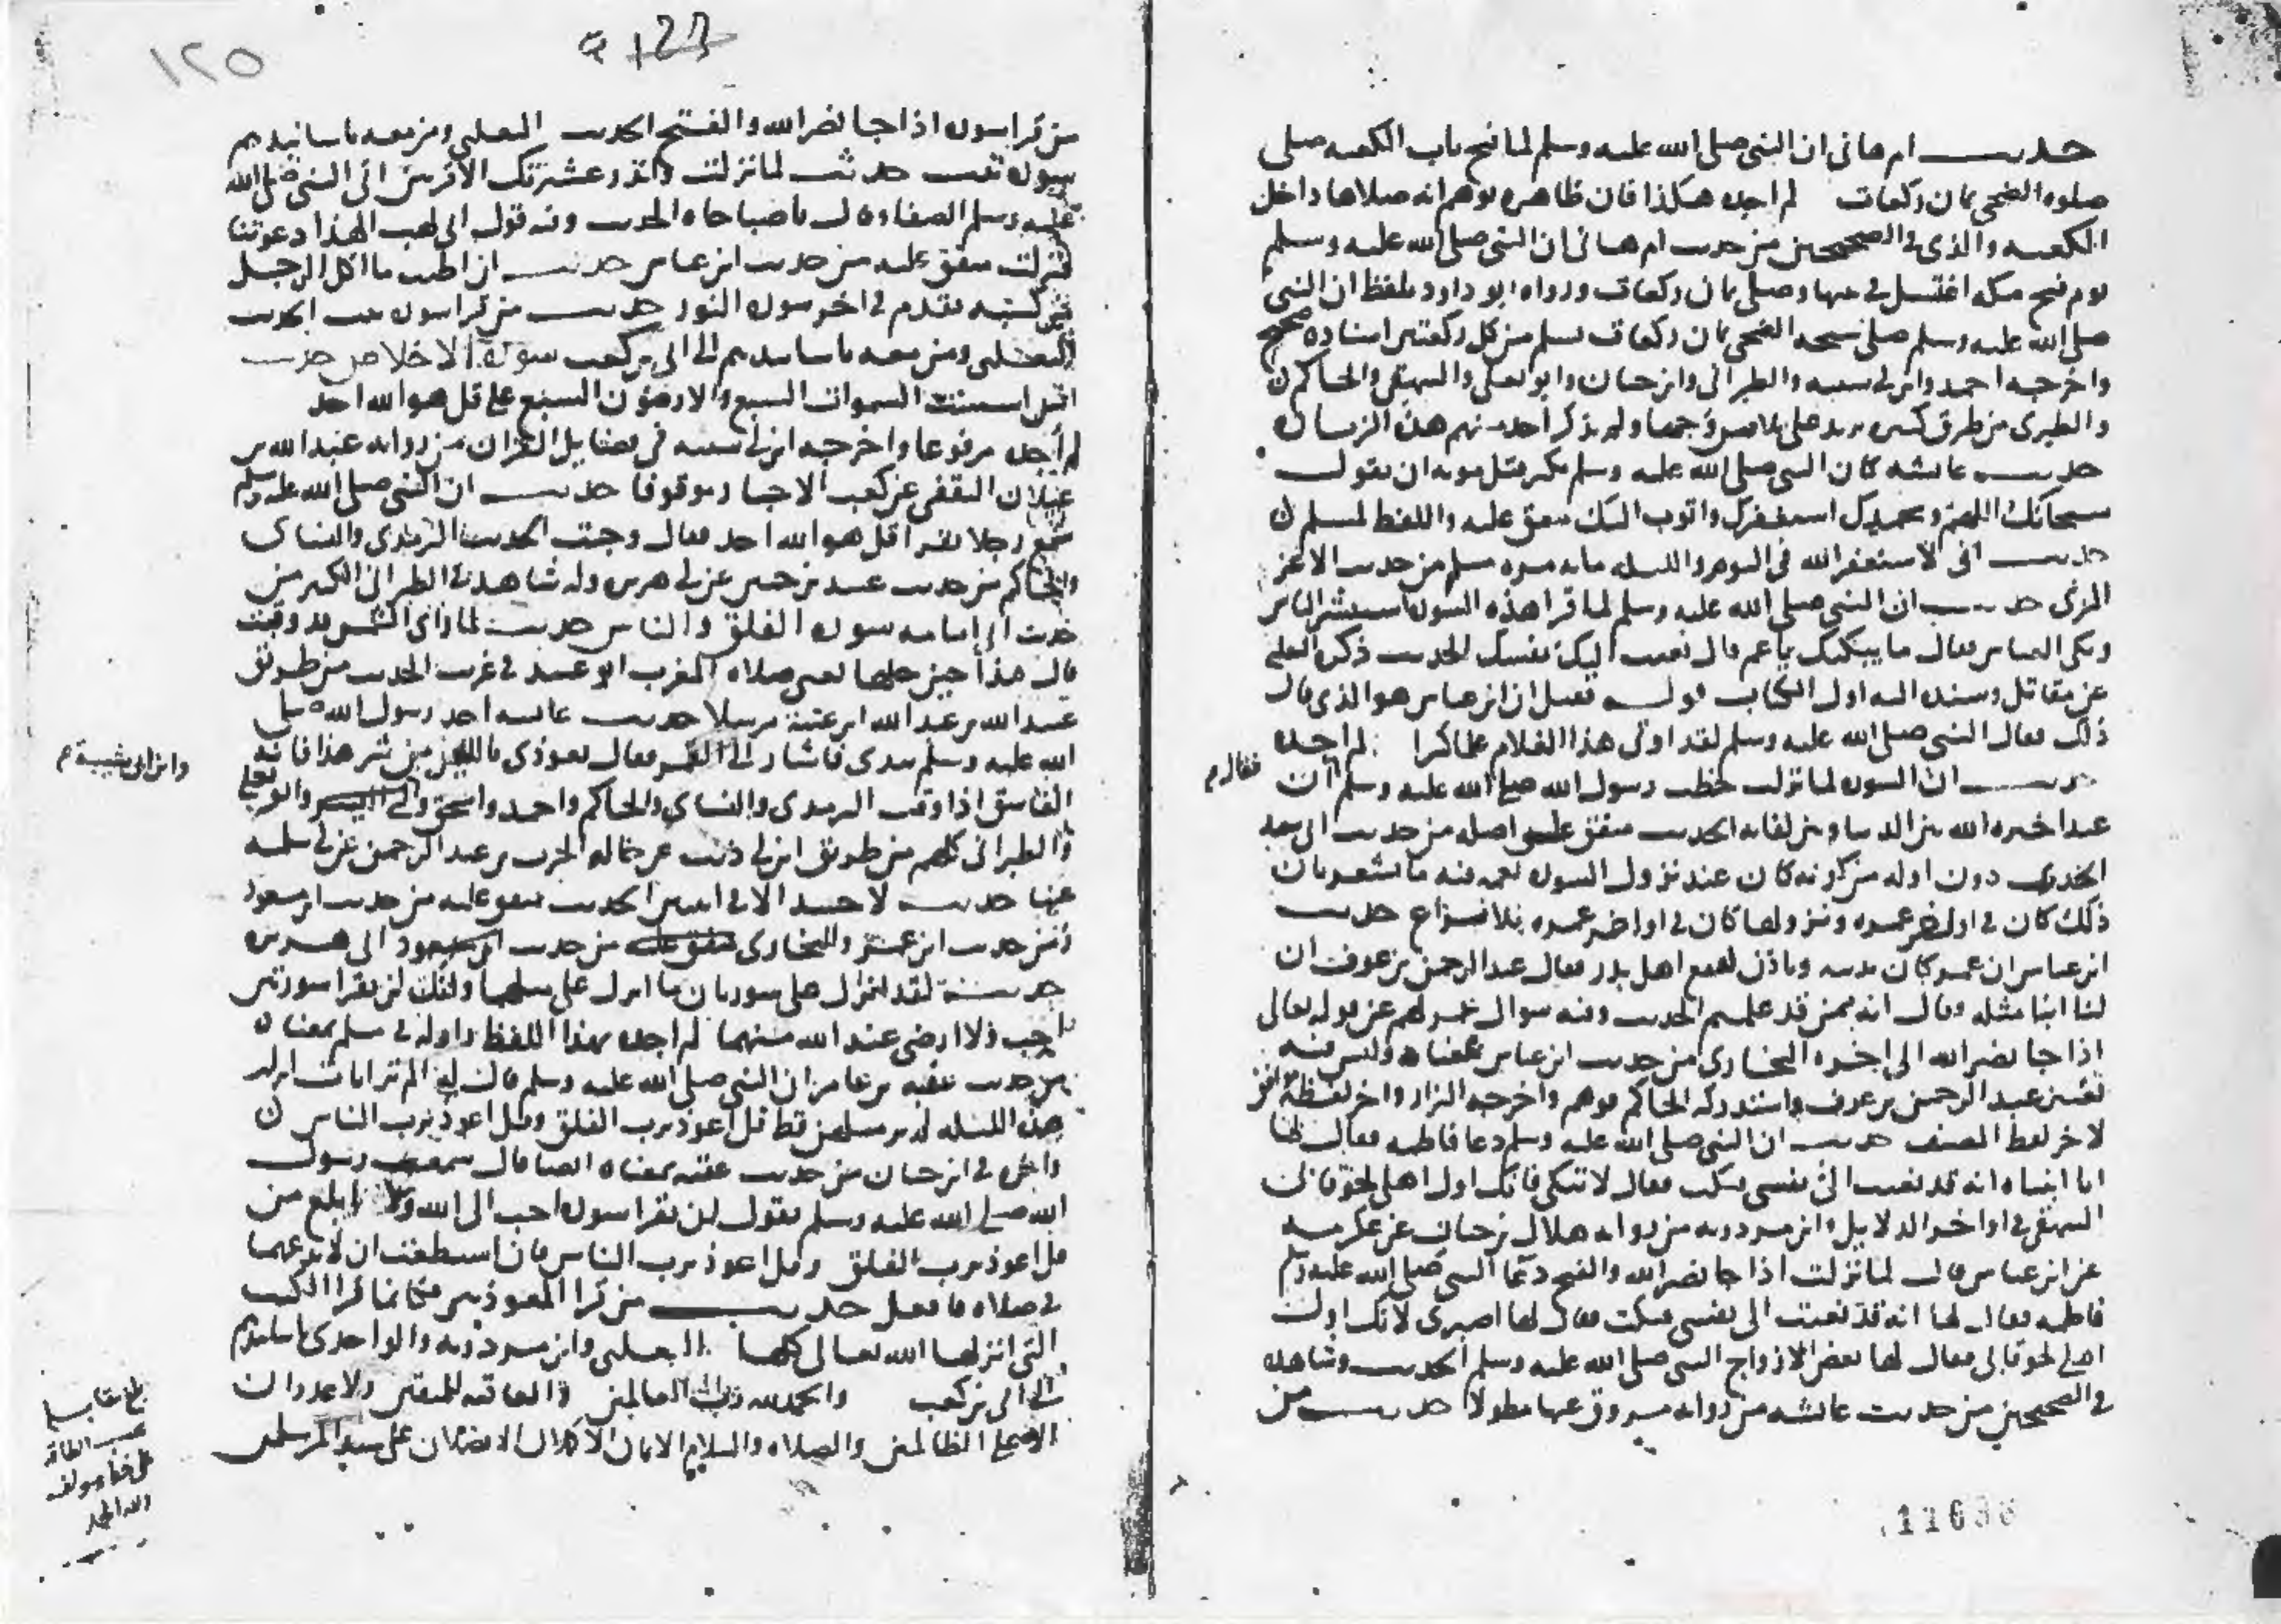 حديث ام هانى ان النبي صلى الله عليه وسلم لما فتح باب الكعبه صلى
صلوه الضحى ثمان ركعات لم اجده هكذا فان ظاهره يوهم انه صلاها داخل
الكعبه والذى في الصحيحين من حديث ام هانى ان النبي صلى الله عليه وسلم
يوم فتح مكه اغتسل في بيتها وصلى ثمان ركعات ورواه ابو داود بلفظ ان النبي
صلى الله عليه وسلم صلى سبحه الضحى ثمان ركعات يسلم من كل ركعتين اسناده صحيح
واخرجه احمد وابن ابي شيبه والطبراني وابن حبان وابو يعلى والبيهقي والحاكم
والطبرى من طرق كثيره يزيد على ولم يذكر احد منهم هذه الزياده
حديث عائشه كان النبي صلى الله عليه وسلم يكثر قبل موته ان يقول
سبحانك اللهم وبحمدك استغفرك واتوب اليك متفق عليه واللفظ لمسلم
حديث انى لاستغفر الله في اليوم والليله مايه مره مسلم من حديث الاغر
المزنى حديث ان النبي صلى الله عليه وسلم لما قرا هذه السوره استبشر الناس
وبكى العباس فقال ما يبكيك يا عم قال نعيت اليك نفسك الحديث ذكره الثعلبي
عن مقاتل وسنده اليه اول الكتاب قوله قيل ان ابن عباس هو الذى قال
ذلك فقال النبي صلى الله عليه وسلم لقد اوتى هذا الغلام علما كثيرا لم اجده
حديث ان السوره لما نزلت خطب رسول الله صلى الله عليه وسلم ان
فقال م
عبدا خيره الله بين الدنيا وبين لقايه الحديث متفق على اصله من حديث ابي سعيد
الخدري دون اوله من كونه كان عند نزول السوره نعم فيه ما يشعر بان
ذلك كان في اواخر عمره ونزولها كان في اواخر عمره بلا نزاع حديث
ابن عباس ان عمر كان يدنيه وياذن له مع اهل بدر فقال عبد الرحمن بن عوف ان
لنا ابنا مثله وقال انه ممن قد علمتم الحديث وفيه سوال عمر لهم عن قوله تعالى
اذا جا نصر الله الى اخره البخارى من حديث ابن عباس بمعناه وليس فيه
تعيين عبد الرحمن بن عوف واستدركه الحاكم فوهم واخرجه البزار واخر لفظه موافق
لاخر لفظ المصنف حديث ان النبي صلى الله عليه وسلم دعا فاطمه فقال لها
يا ابنتاه انه قد نعيت الى نفسى فبكت فقال لا تبكى فانك اول اهلى لحوقا بى
البيهقي في اواخر الدلايل وابن مردويه من روايه هلال بن خباب عن عكرمه
عن ابن عباس قال لما نزلت اذا جا نصر الله والفتح دعا النبي صلى الله عليه وسلم
فاطمه فقال لها انه قد نعيت الى نفسى فبكت فقال لها اصبرى لانك اول
اهلى لحوقا بى فقال لها بعض الازواج النبي صلى الله عليه وسلم الحديث وشاهده
في الصحيحين من حديث عائشه من روايه مسروق عنها مطولا حديث من
11686
9 123
١٢٥
من قرا سوره اذا جا نصر الله والفتح الحديث الثعلبي ومن معه باسانيدهم
سوره تبت حديث لما نزلت وانذر عشيرتك الاقربين اتى النبي صلى الله
عليه وسلم الصفا وقال يا صباحاه الحديث وفيه قول ابى لهب الهذا دعوتنا
فنزلت متفق عليه من حديث ابن عباس حديث ان اطيب ما اكل الرجل
من كسبه تقدم في اخر سوره النور حديث من قرا سوره تبت الحديث
الثعلبي ومن معه باسانيدهم الى ابى بن كعب سورة الاخلاص حديث
اسست السموات السبع والارضون السبع على قل هو الله احد
لم اجده مرفوعا واخرجه ابن ابي شيبه في فضايل القران من روايه عبد الله بن
غيلان الثقفي عن كعب الاحبار موقوفا حديث ان النبي صلى الله عليه وسلم
سمع رجلا يقرا قل هو الله احد فقال وجبت الحديث الترمذى والنساى
والحاكم من حديث عبيد بن حنين عن ابي هريره وله شاهد في الطبرانى الكبير من
حديث ابى امامه سوره الفلق والناس حديث لما راى الشمس قد وقبت
قال هذا حين حلها يعنى صلاه المغرب ابو عبيد في غريب الحديث من طريق
عبد الله بن عبد الله ابن عتبه مرسلا حديث عائشه اخذ رسول الله صلى
الله عليه وسلم بيدى فاشار الى القمر فقال تعوذى بالله من شر هذا فانه
وابن ابى شيبة م
الغاسق اذا وقب الترمذى والنساى والحاكم واحمد واسحق وابو يعلى
والطبرانى كلهم من طريق ابن ابي ذئب عن خاله الحرث بن عبد الرحمن عن ابي سلمه
عنها حديث لا حسد الا في اثنتين الحديث متفق عليه من حديث ابن مسعود
ومن حديث ابن عمر وللبخارى متفق عليه من حديث ابن مسعود ابى هريره
حديث لقد انزل على سورتان ما انزل على مثلهما وانك لن تقرا سورتين
احب ولا ارضى عند الله منهما لم اجده بهذا اللفظ واوله في مسلم بمعناه
من حديث عقبه بن عامر ان النبي صلى الله عليه وسلم قال له الم تر ايات انزلت
هذه الليله لم ير مثلهن قط قل اعوذ برب الفلق وقل اعوذ برب الناس
واخرج ابن حبان من حديث عقبه بمعناه ايضا قال سمعت رسول
الله صلى الله عليه وسلم يقول لن تقرا سوره احب الى الله ولا ابلغ من
قل اعوذ برب الفلق وقل اعوذ برب الناس فان استطعت ان لا تدعهما
في صلاه فافعل حديث من قرا المعوذتين فكانما قرا الكتب
التى انزلها الله تعالى كلها الثعلبي وابن مردويه والواحدى باسانيدهم
الى ابى بن كعب والحمد لله رب العالمين والعاقبه للمتقين ولا عدوان
الا على الظالمين والصلاه والسلام الاتمان الاكملان الافضلان على سيد المرسلين
بلغ مقابله
حسب الطاقه
على خط مولفه
ولله الحمد